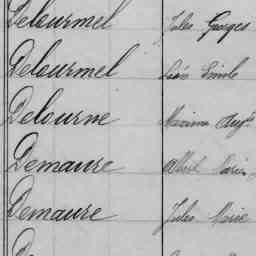 Delourmel Jules Georges
Delourmel Léon Emile
Delourne Maxime Aug.te
Demaure Albert Marie
Demaure Jules Marie